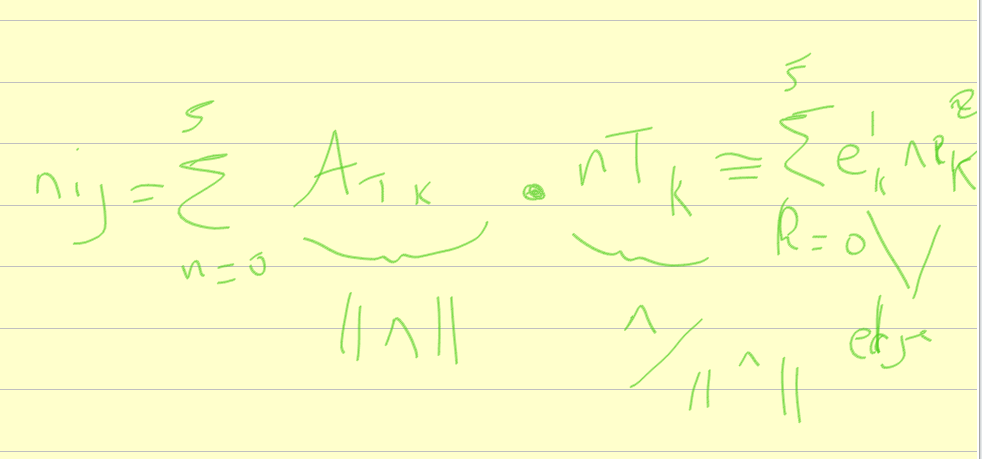 n_{ij} = \sum_{n=0}^{5} A_{T_K} \cdot n_{T_K} \cong \sum_{k=0}^{5} e_k^1 \wedge e_K^2
||∧|| ∧/||∧|| edge